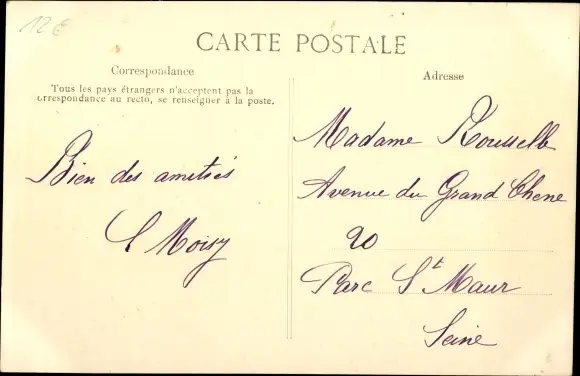 12 €
CARTE POSTALE
Correspondance
Tous les pays étrangers n'acceptent pas la
correspondance au recto, se renseigner à la poste.
Bien des amitiés
L Moisy
Adresse
Madame Rousselle
Avenue du Grand Chene
20
Parc St Maur
Seine